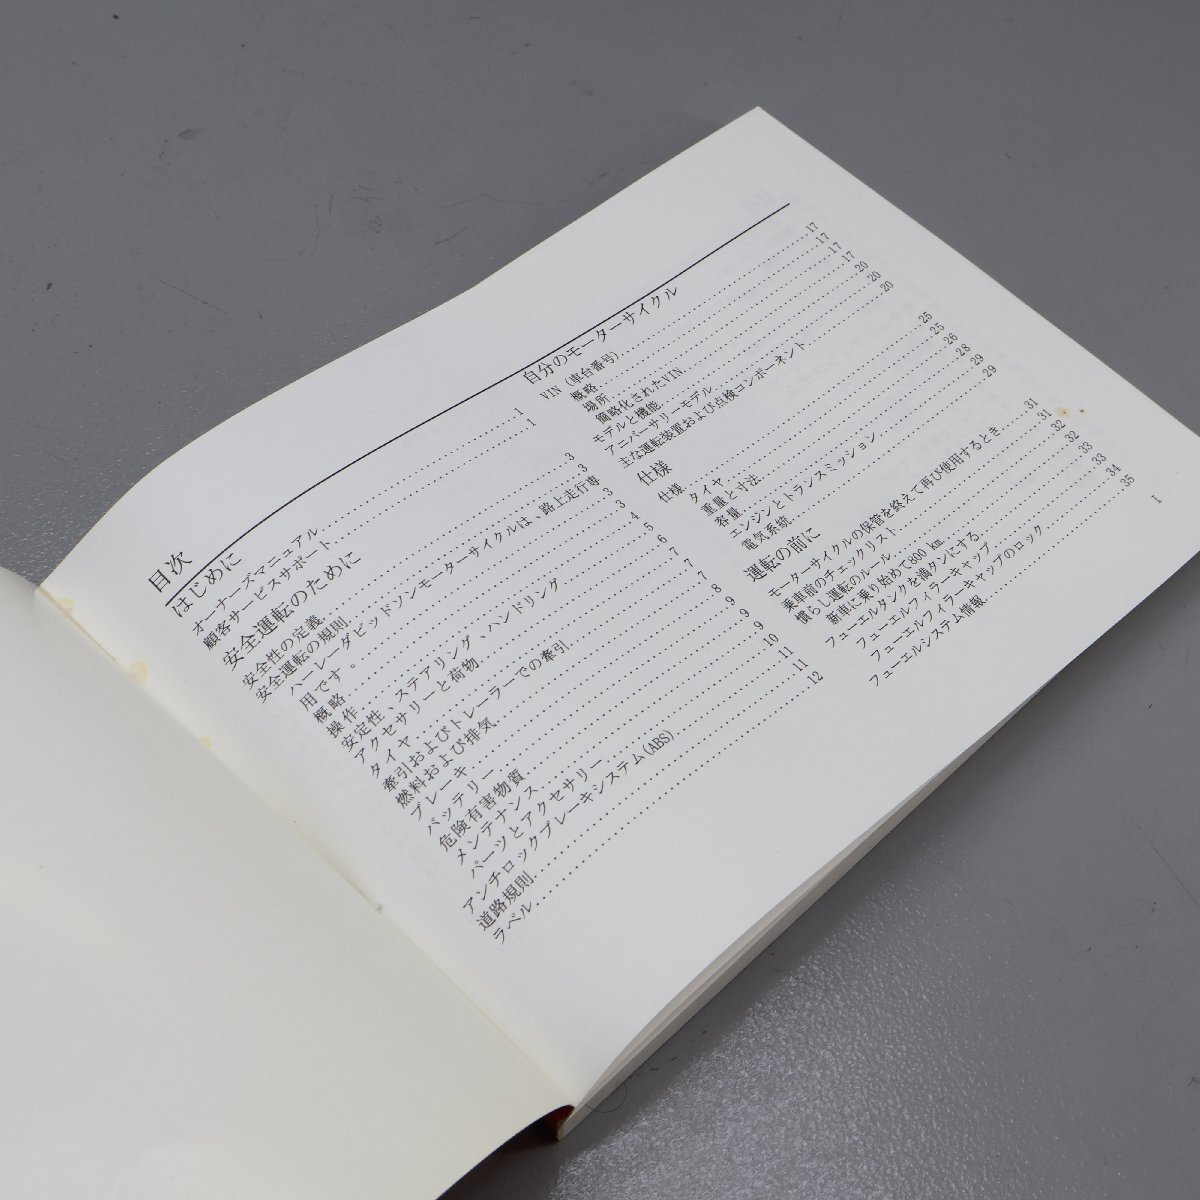 目次
はじめに
オーナーズマニュアル 1
顧客サービスサポート 1
安全運転のために
安全性の定義 3
安全運転の規則 3
ハーレーダビッドソンモーターサイクルは、路上走行専
用です。 3
概略 3
操作 4
安定性、ステアリング、ハンドリング 5
アクセサリーと荷物 6
タイヤ 7
牽引およびトレーラーでの牽引 7
燃料および排気 7
ブレーキ 8
バッテリー 9
危険有害物質 9
メンテナンス 9
パーツとアクセサリー 10
アンチロックブレーキシステム(ABS) 11
道路規則 11
ラベル 12
自分のモーターサイクル
VIN（車台番号）
概略 17
場所 17
簡略化されたVIN 17
モデルと機能 20
アニバーサリーモデル 20
主な運転装置および点検コンポーネント 20
仕様
仕様 25
タイヤ 25
重量と寸法 26
容量 28
エンジンとトランスミッション 29
電気系統 29
運転の前に
モーターサイクルの保管を終えて再び使用するとき 31
乗車前のチェックリスト 31
慣らし運転のルール 32
新車に乗り始めて800 km 32
フューエルタンクを満タンにする 33
フューエルフィラーキャップ 33
フューエルフィラーキャップのロック 34
フューエルシステム情報 35
I